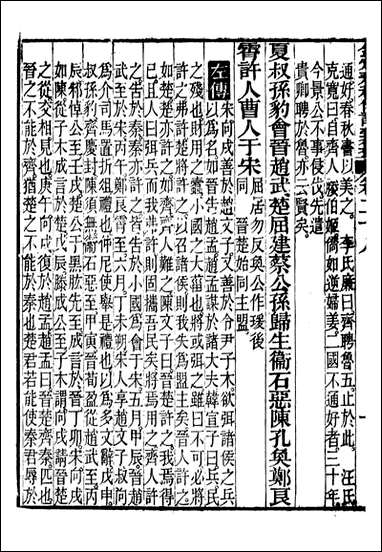 通好春秋書以美之。李氏廉曰齊聘魯五止於此。汪氏
克寬曰自齊人
今景公不事侵伐先遣
貴卿聘於魯亦二
夏叔孫豹會晉趙武楚屈建蔡公孫歸生衞石惡陳孔奐鄭良
霄許人曹人于宋
屈居勿反奐公作瑗後
同 晉楚始同主盟
左傳
宋向戌善於趙文子又善於令尹子木欲弭諸侯之兵
以爲名如晉告趙孟趙孟謀於諸大夫韓宣子曰兵民
之殘也財用之蠹小國之大菑也將或弭之雖曰不可必將
許之弗許楚將許之以召諸侯則我失爲盟主矣晉人許之
如楚楚亦許之如齊齊人難之陳文子曰晉楚許之我焉得
已且人曰弭兵而我弗許則固攜吾民矣將焉用之齊人許
之告於秦秦亦許之皆告於小國爲會于宋五月甲辰晉趙
武至於宋丙午鄭良霄至六月丁未朔宋人享趙文子叔向
爲介司馬置折俎禮也仲尼使舉是禮也以爲多文辭戊申
叔孫豹齊慶封陳須無衞石惡至甲寅晉荀盈從趙武至丙
辰邾悼公至壬戌楚公子黑肱先至成言於晉丁卯宋向戌
如陳從子木成言於楚戊辰滕成公至子木謂向戌請晉楚
之從交相見也庚午向戌復於趙孟趙孟曰晉楚齊秦匹也
晉之不能於齊猶楚之不能於秦也楚君若能使秦君辱於